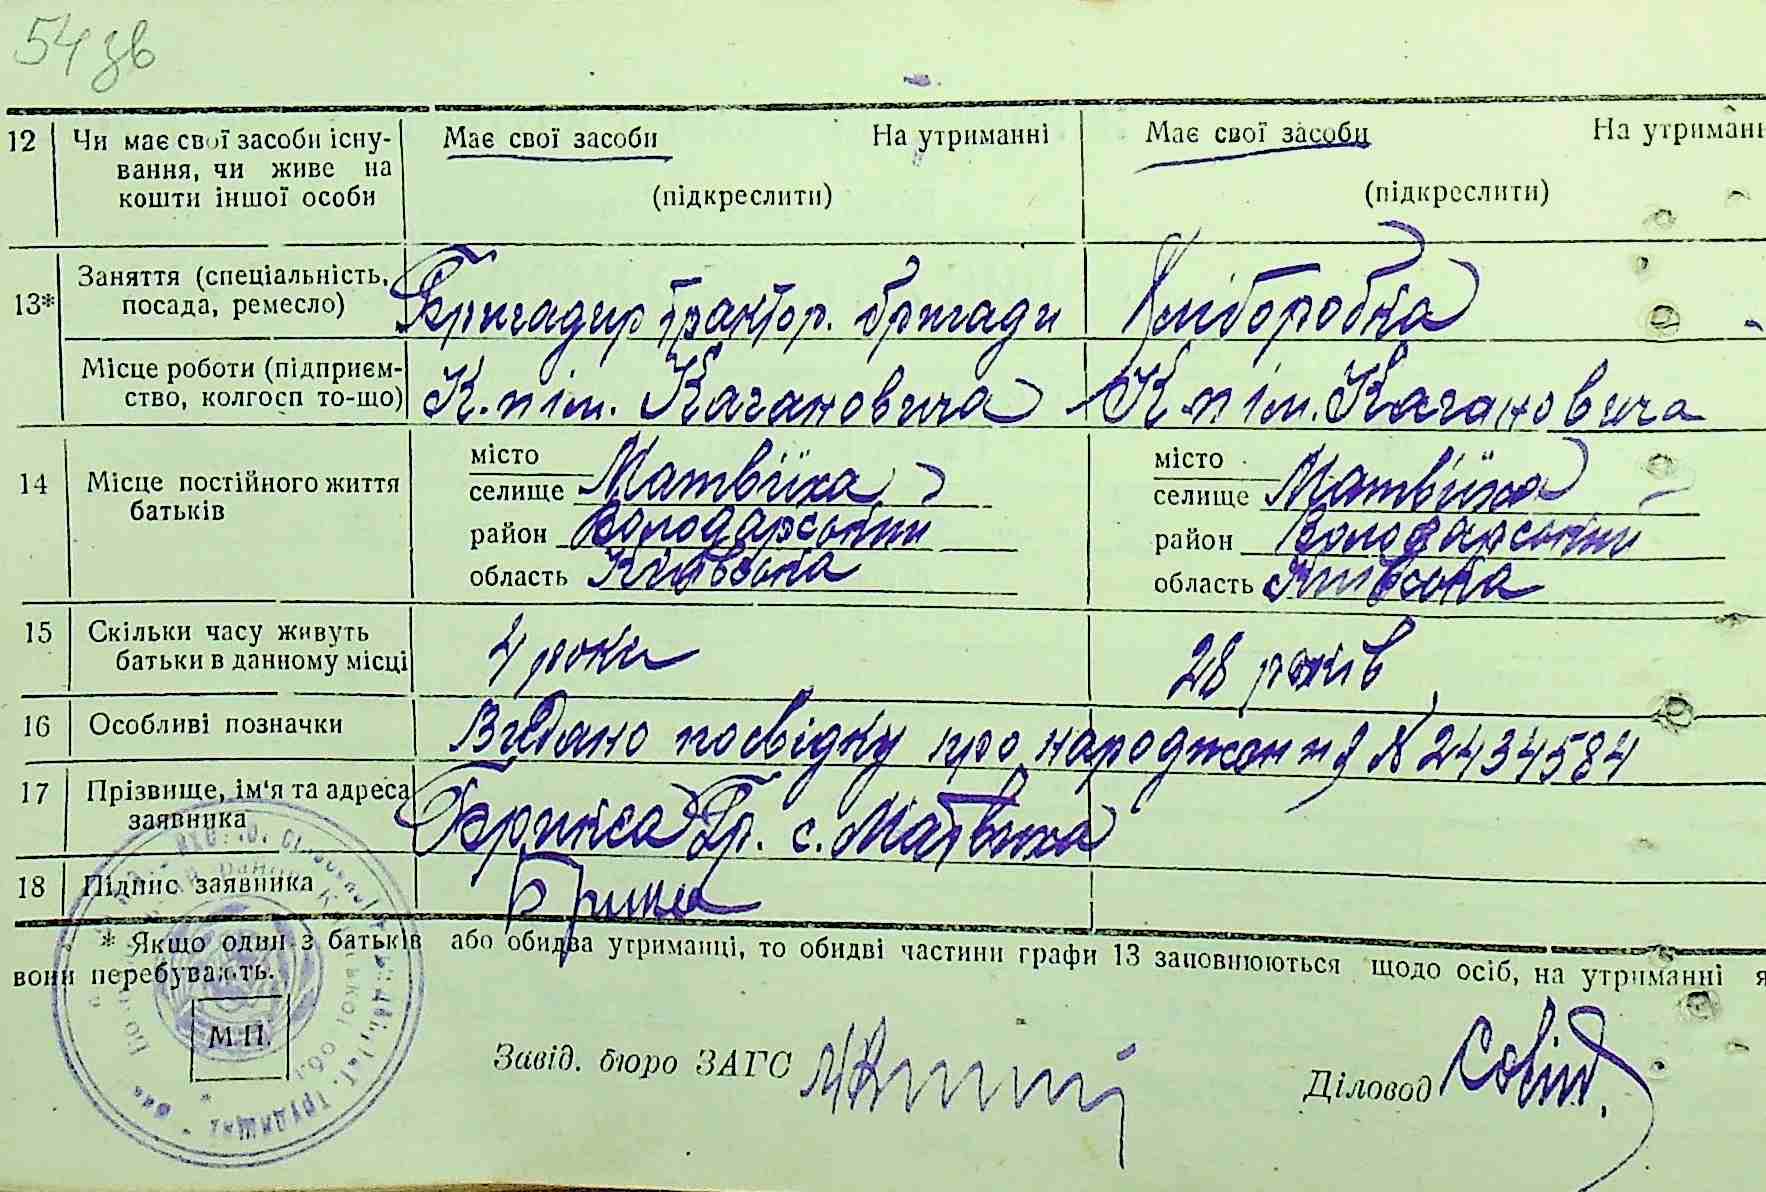 54 зв
12 Чи має свої засоби існу- Має свої засоби На утриманні Має свої засоби На утриманн
вання, чи живе на
кошти іншої особи (підкреслити) (підкреслити)
13* Заняття (спеціальність, Бригадир трактор. бригади Хліборобка
посада, ремесло)
Місце роботи (підприєм- К.п ім. Кагановича К п ім. Кагановича
ство, колгосп то-що)
місто місто
14 Місце постійного життя селище Матвіїха селище Матвіїха
батьків район Володарський район Володарський
область Київська область Київська
15 Скільки часу живуть 4 роки 28 років
батьки в данному місці
16 Особливі позначки Видано посвідку про народження № 2434584
17 Прізвище, ім'я та адреса Гр. с. Матвіїха
заявника
18 Підпис заявника
* Якщо один з батьків або обидва утриманці, то обидві частини графи 13 заповнюються щодо осіб, на утриманні я
вони перебувають.
М П.
Завід. бюро ЗАГС
Діловод